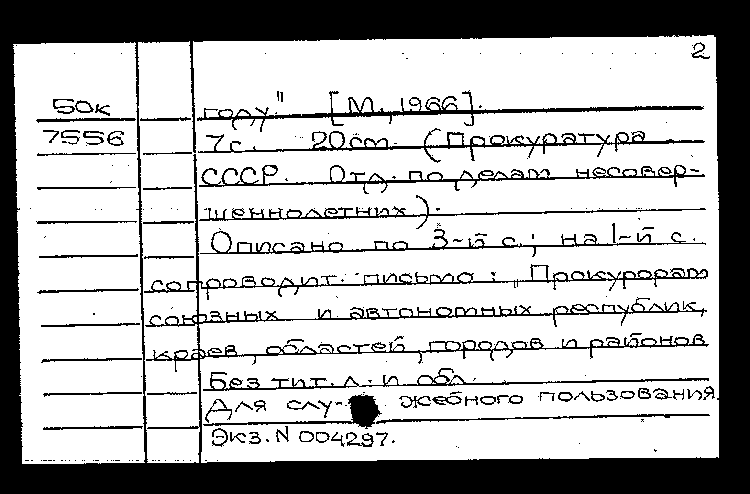 2
50к году" [М., 1966].
7556 7с. 20см. (Прокуратура
СССР. Отд. по делам несовер-
шеннолетних).
Описано по 3-й с.; на 1-й с.
сопроводит. письмо: „Прокурорам
союзных и автономных республик,
краев, областей, городов и районов
Без тит. л. и обл.
Для слу- жебного пользования.
Экз. N 004297.